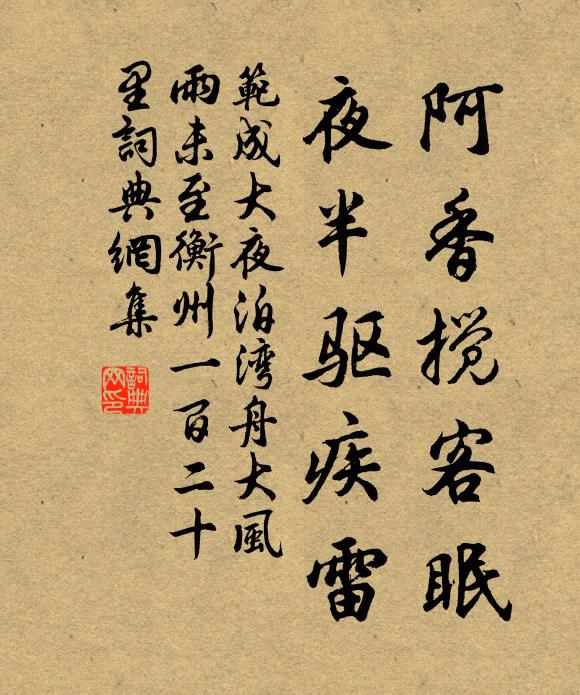 阿香搅客眠
夜半驱疾雷
範成大夜泊湾舟大風
雨未至衡州一百二十
里詞典網集
詞典
网印